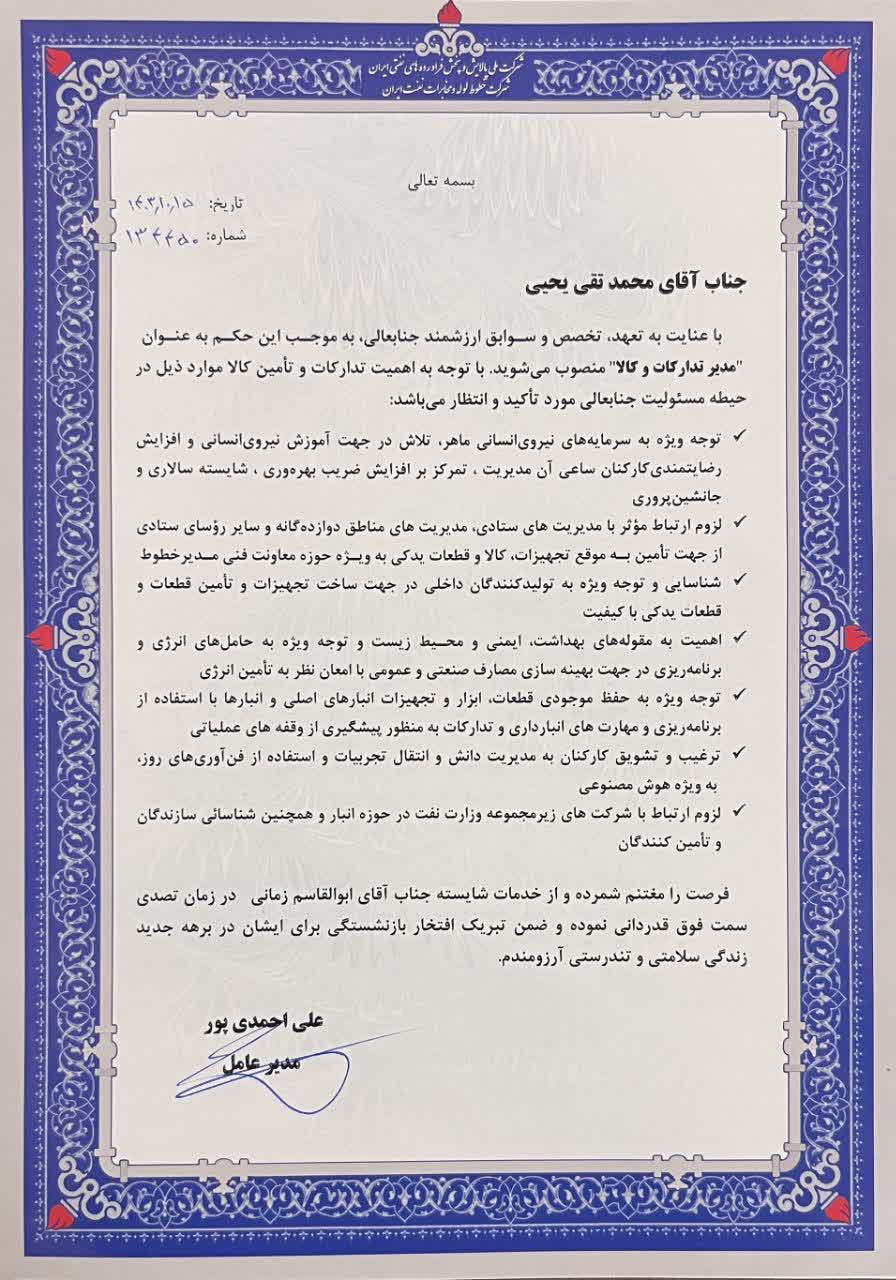 شرکت ملی پالایش و پخش فرآورده‌های نفتی ایران
شرکت خطوط لوله و مخابرات نفت ایران
بسمه تعالی
تاریخ: ۱۴۰۳/۱۰/۱۵
شماره: ۱۳۴۴۵۰
جناب آقای محمد تقی یحیی
با عنایت به تعهد، تخصص و سوابق ارزشمند جنابعالی، به موجب این حکم به عنوان
"مدیر تدارکات و کالا" منصوب می‌شوید. با توجه به اهمیت تدارکات و تأمین کالا موارد ذیل در
حیطه مسئولیت جنابعالی مورد تأکید و انتظار می‌باشد:
✓ توجه ویژه به سرمایه‌های نیروی‌انسانی ماهر، تلاش در جهت آموزش نیروی‌انسانی و افزایش
رضایتمندی‌کارکنان ساعی آن مدیریت ، تمرکز بر افزایش ضریب بهره‌وری ، شایسته سالاری و
جانشین‌پروری
✓ لزوم ارتباط مؤثر با مدیریت های ستادی، مدیریت های مناطق دوازده‌گانه و سایر رؤسای ستادی
از جهت تأمین به موقع تجهیزات، کالا و قطعات یدکی به ویژه حوزه معاونت فنی مدیرخطوط
✓ شناسایی و توجه ویژه به تولیدکنندگان داخلی در جهت ساخت تجهیزات و تأمین قطعات و
قطعات یدکی با کیفیت
✓ اهمیت به مقوله‌های بهداشت، ایمنی و محیط زیست و توجه ویژه به حامل‌های انرژی و
برنامه‌ریزی در جهت بهینه سازی مصارف صنعتی و عمومی با امعان نظر به تأمین انرژی
✓ توجه ویژه به حفظ موجودی قطعات، ابزار و تجهیزات انبارهای اصلی و انبارها با استفاده از
برنامه‌ریزی و مهارت های انبارداری و تدارکات به منظور پیشگیری از وقفه های عملیاتی
✓ ترغیب و تشویق کارکنان به مدیریت دانش و انتقال تجربیات و استفاده از فن‌آوری‌های روز،
به ویژه هوش مصنوعی
✓ لزوم ارتباط با شرکت های زیرمجموعه وزارت نفت در حوزه انبار و همچنین شناسائی سازندگان
و تأمین کنندگان
فرصت را مغتنم شمرده و از خدمات شایسته جناب آقای ابوالقاسم زمانی در زمان تصدی
سمت فوق قدردانی نموده و ضمن تبریک افتخار بازنشستگی برای ایشان در برهه جدید
زندگی سلامتی و تندرستی آرزومندم.
علی احمدی پور
مدیر عامل